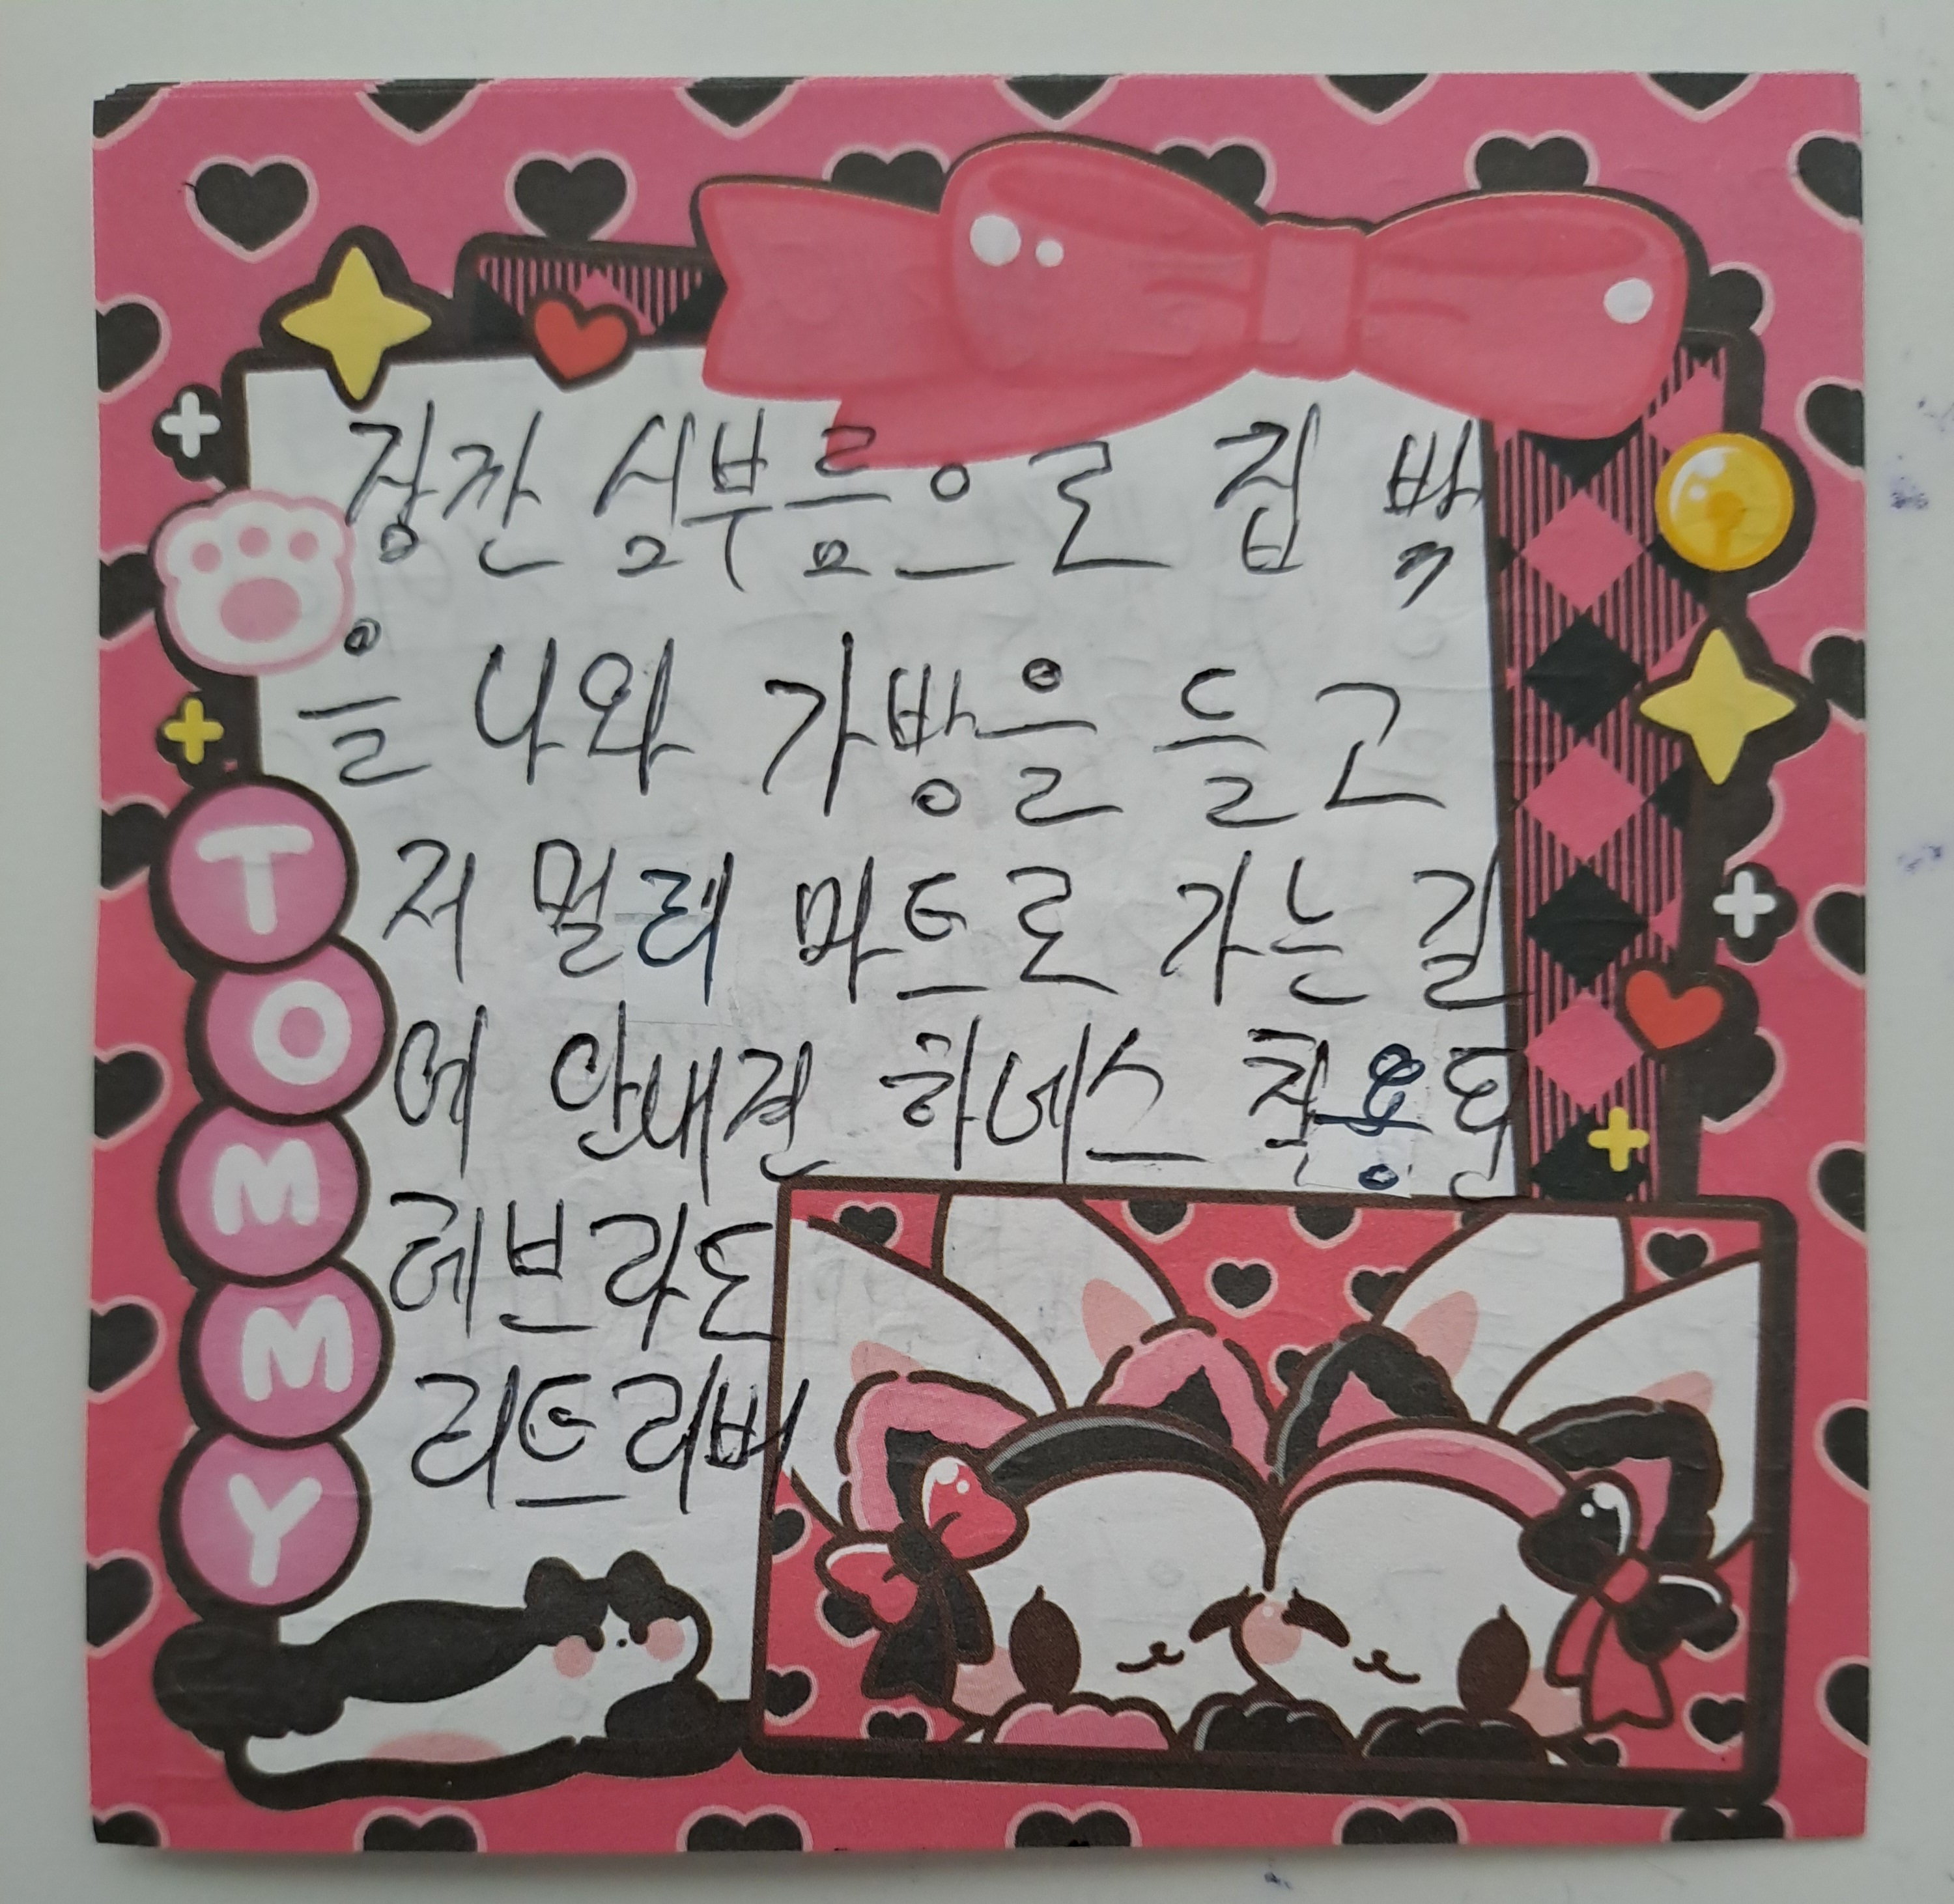 장깐 심부름으로 집 밖
을 나와 가방을 들고
저 멀래 마트로 가는 길
에 안내견 하네스 착용된
레브라도
리트리버
TOMMY